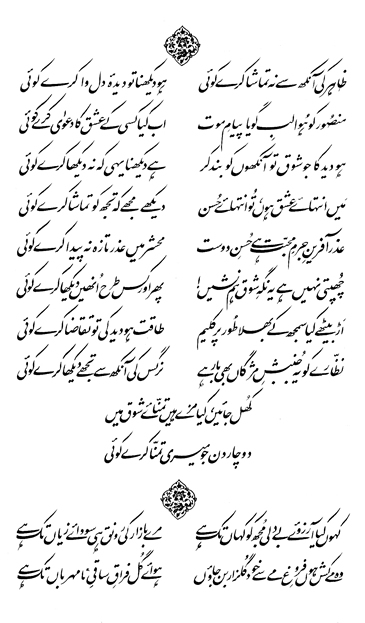 ظاہر کی آنکھ سے نہ تماشا کرے کوئی ہو دیکھنا تو دیدۂ دل وا کرے کوئی
منصور کو ہوا لبِ گویا پیامِ موت اب کیا کسی کے عشق کا دعویٰ کرے کوئی
ہو دید کا جو شوق تو آنکھوں کو بند کر ہے دیکھنا یہی کہ نہ دیکھا کرے کوئی
میں انتہائے عشق ہوں تُو انتہائے حُسن دیکھے مجھے کہ تجھ کو تماشا کرے کوئی
عذر آفرینِ جرمِ محبت ہے حُسنِ دوست محشر میں عذرِ تازہ نہ پیدا کرے کوئی
چُھپتی نہیں ہے یہ نگہِ شوق ہم نشیں! پھر اور کس طرح اُنھیں دیکھا کرے کوئی
اَڑ بیٹھے کیا سمجھ کے بھلا طُور پر کلیم طاقت ہو دید کی تو تقاضا کرے کوئی
نظّارے کو یہ جنبشِ مژگاں بھی بار ہے نرگس کی آنکھ سے تجھے دیکھا کرے کوئی
کُھل جائیں، کیا مزے ہیں تمنّائے شوق میں
دو چار دن جو میری تمنّا کرے کوئی
کہوں کیا آرزوئے بے دلی مُجھ کو کہاں تک ہے مرے بازار کی رونق ہی سودائے زیاں تک ہے
وہ مے کش ہوں فروغِ مے سے خود گلزار بن جاؤں ہوائے گُل فراقِ ساقیِ نامہرباں تک ہے